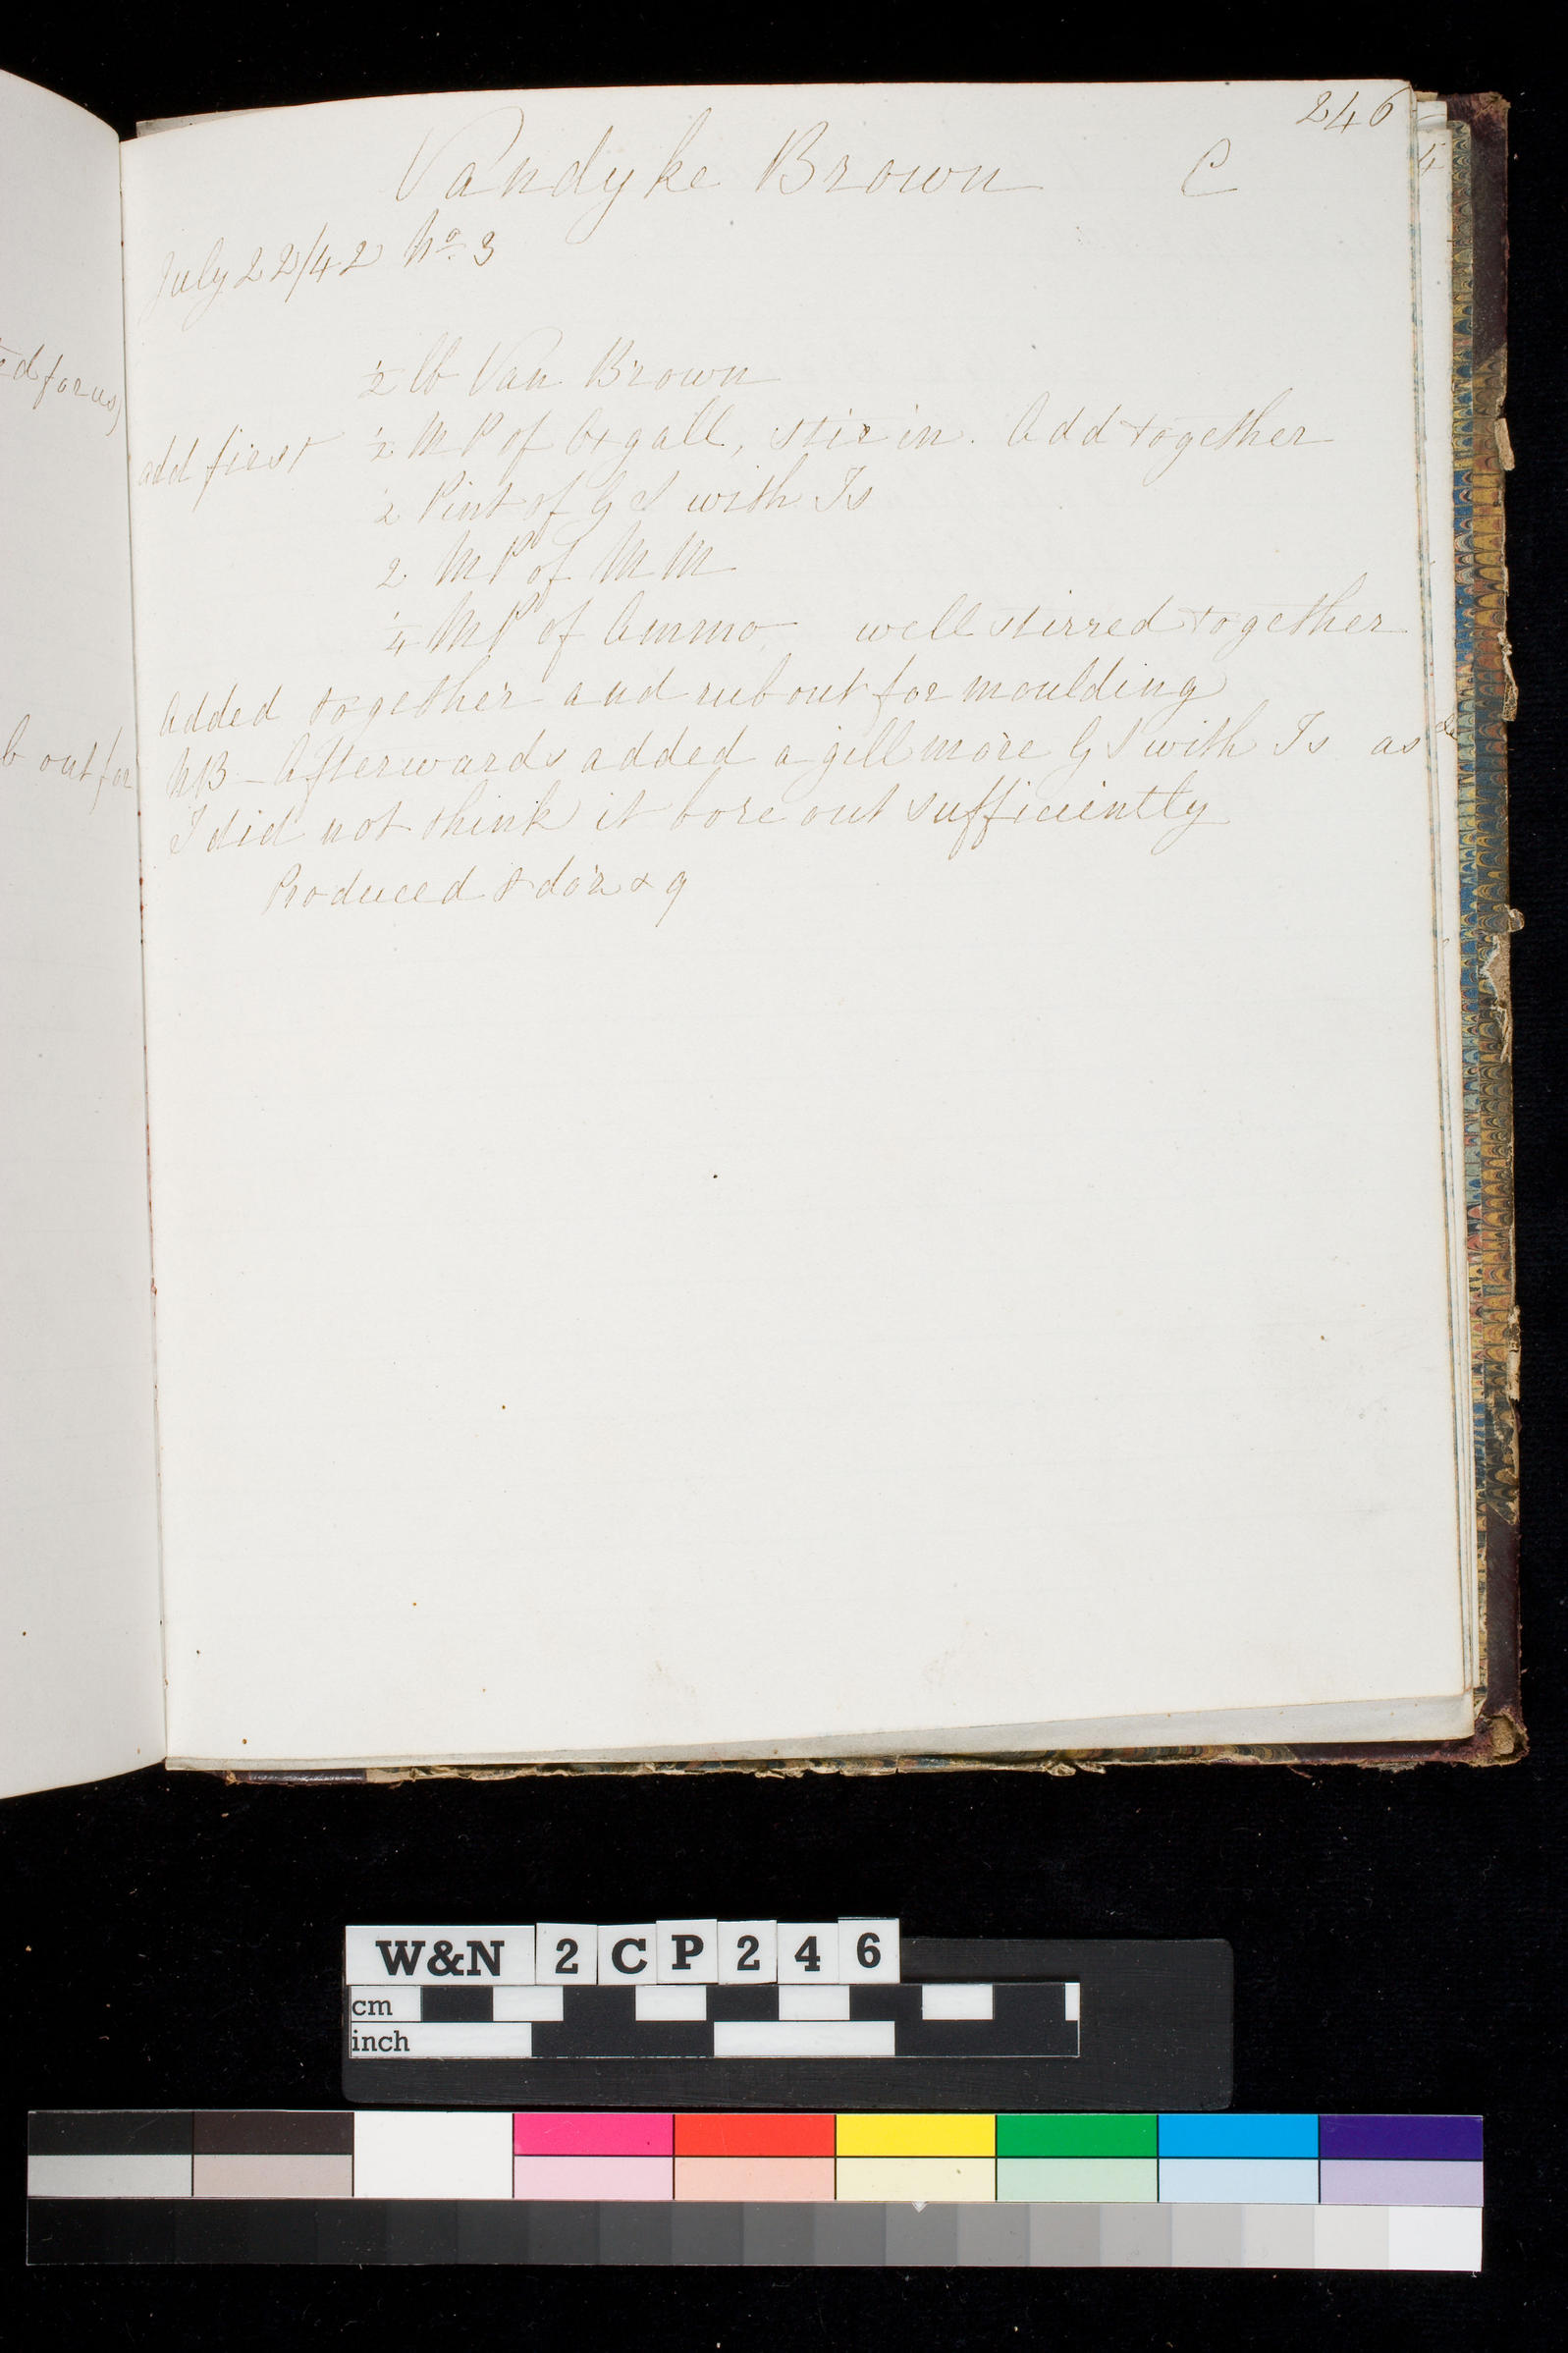 246
Vandyke Brown C
July 22/42 No. 3
½ lb Van Brown
add first ½ MP of Oxgall, stir in. Add together
½ Pint of G S with Is
2 MP of M M
¼ MP of Ammo well stirred together
Added together and rub out for moulding
NB – Afterwards added a gill more G S with Is as
I did not think it bore out sufficiently
Produced doz & 9
ed for us
b out for
W&N 2CP246
cm
inch